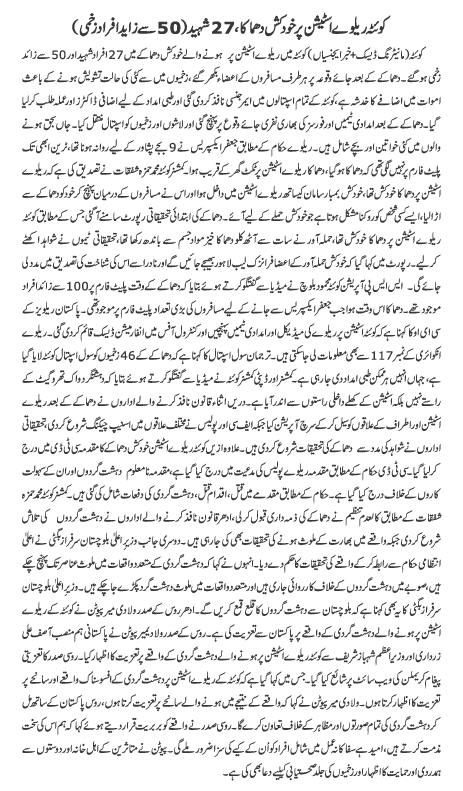 کوئٹہ ریلوے اسٹیشن پر خودکش دھماکا، 27 شہید (50 سے زاید افراد زخمی)
کوئٹہ (مانیٹرنگ ڈیسک + خبر ایجنسیاں) کوئٹہ میں ریلوے اسٹیشن پر ہونے والے خودکش دھماکے میں 27 افراد شہید اور 50 سے زائد
زخمی ہو گئے۔ دھماکے کے بعد جائے وقوعہ پر ہر طرف مسافروں کے اعضاء بکھر گئے، زخمیوں میں سے کئی کی حالت تشویش ہونے کے باعث
اموات میں اضافے کا خدشہ ہے، کوئٹہ کے تمام اسپتالوں میں ایمرجنسی نافذ کر دی گئی اور طبی امداد کے لیے اضافی ڈاکٹرز اور عملہ طلب کر لیا
گیا۔ دھماکے کے بعد امدادی ٹیمیں اور فورسز کی بھاری نفری جائے وقوع پر پہنچ گئی اور لاشوں اور زخمیوں کو اسپتال منتقل کیا۔ جاں بحق ہونے
والوں میں کئی خواتین اور بچے شامل ہیں۔ ریلوے حکام کے مطابق جعفر ایکسپریس نے 9 بجے پشاور کے لیے روانہ ہونا تھا، ٹرین ابھی تک
پلیٹ فارم پر نہیں لگی تھی کہ دھماکا ہو گیا، دھماکا ریلوے اسٹیشن پر ٹکٹ گھر کے قریب ہوا۔ کمشنر کوئٹہ محمد حمزہ شفقات نے تصدیق کی ہے کہ ریلوے
اسٹیشن پر دھماکا خودکش تھا، خودکش بمبار سامان کیساتھ ریلوے اسٹیشن میں داخل ہوا اور اس نے مسافروں کے درمیان پہنچ کر خود کو دھماکے سے
اڑا لیا، ایسے کسی شخص کو روکنا مشکل ہوتا ہے جو خودکش حملے کے لیے آئے۔ دھماکے کی ابتدائی تحقیقاتی رپورٹ سامنے آ گئی جس کے مطابق کوئٹہ
ریلوے اسٹیشن پر دھماکا خودکش تھا، حملہ آور نے سات سے آٹھ کلو دھماکا خیز مواد جسم سے باندھ رکھا تھا، تحقیقاتی ٹیموں نے شواہد اکٹھے کر
لیے۔ رپورٹ میں کہا گیا کہ خودکش حملہ آور کے اعضا فرانزک لیب لاہور بھیجے جائیں گے اور نادرا سے اس کی شناخت کی تصدیق میں مدد لی
جائے گی۔ ایس ایس پی آپریشن کوئٹہ محمد بلوچ نے میڈیا سے گفتگو کرتے ہوئے بتایا کہ دھماکے کے وقت پلیٹ فارم پر 100 سے زائد افراد
موجود تھے۔ دھماکا اس وقت ہوا جب جعفر ایکسپریس سے جانے کے لیے مسافروں کی بڑی تعداد پلیٹ فارم پر موجود تھی۔ پاکستان ریلویز کے
سی ای او کا کہنا ہے کہ کوئٹہ اسٹیشن پر ریلوے کی میڈیکل اور امدادی ٹیمیں پہنچیں اور کنٹرول آفس میں انفارمیشن ڈیسک قائم کر دی گئی۔ ریلوے
انکوائری کے نمبر 117 سے بھی معلومات لی جا سکتی ہیں۔ ترجمان سول اسپتال کا کہنا ہے کہ دھماکے کے 46 زخمیوں کو سول اسپتال کوئٹہ لایا گیا
ہے، جہاں انہیں ہر ممکن طبی امداد دی جا رہی ہے۔ کمشنر اور ڈپٹی کمشنر کوئٹہ نے میڈیا سے گفتگو کرتے ہوئے بتایا کہ دہشتگرد واک تھرو گیٹ کے
راستے نہیں بلکہ اسٹیشن کے کھلے داخلی راستوں سے اندر آیا ہے۔ دریں اثناء قانون نافذ کرنے والے اداروں نے دھماکے کے بعد ریلوے
اسٹیشن اور اطراف کے علاقوں کو سیل کر کے سرچ آپریشن کیا جبکہ ایف سی اور پولیس نے مختلف علاقوں میں اسنیپ چیکنگ شروع کر دی تحقیقاتی
اداروں نے شواہد کی مدد سے دھماکے کی تحقیقات شروع کر دی ہیں۔ علاوہ ازیں کوئٹہ ریلوے اسٹیشن خودکش دھماکے کا مقدمہ سی ٹی ڈی میں درج
کر لیا گیا۔ سی ٹی ڈی حکام کے مطابق مقدمہ ریلوے پولیس کی مدعیت میں درج کیا گیا ہے، مقدمہ نامعلوم دہشت گردوں اور ان کے سہولت
کاروں کے خلاف درج کیا گیا ہے۔ حکام کے مطابق مقدمے میں قتل، اقدام قتل، دہشت گردی کی دفعات شامل کی گئی ہیں۔ کمشنر کوئٹہ محمد حمزہ
شفقات کے مطابق کالعدم تنظیم نے دھماکے کی ذمہ داری قبول کر لی، ادھر قانون نافذ کرنے والے اداروں نے دہشت گردوں کی تلاش
شروع کر دی جبکہ واقعے میں بھارت کے ملوث ہونے کی تحقیقات بھی کی جا رہی ہیں۔ دوسری جانب وزیر اعلیٰ بلوچستان سرفراز بگٹی نے اعلیٰ
انتظامی حکام سے رابطہ کر کے واقعے کی تحقیقات کا حکم دے دیا۔ انہوں نے کہا کہ دہشت گردی کے متعدد واقعات میں ملوث عناصر تک پہنچ چکے
ہیں، صوبے میں دہشت گردوں کے خلاف کارروائی جاری ہیں اور متعدد واقعات میں ملوث دہشت گرد پکڑے جا چکے ہیں۔ وزیر اعلیٰ بلوچستان
سرفراز بگٹی کا یہ بھی کہنا ہے کہ بلوچستان سے دہشت گردوں کا قلع قمع کریں گے۔ ادھر روس کے صدر ولادی میر پیوٹن نے کوئٹہ کے ریلوے
اسٹیشن پر ہونے والی دہشت گردی کے واقعے پر پاکستان سے تعزیت کی ہے۔ روس کے صدر ولادیمیر پیوٹن نے پاکستانی ہم منصب آصف علی
زرداری اور وزیر اعظم شہباز شریف سے کوئٹہ کے ریلوے اسٹیشن پر ہونے والے دہشت گردی کے واقعے پر تعزیت کا اظہار کیا۔ روسی صدر کا تعزیتی
پیغام کریملن کی ویب سائٹ پر شائع کیا گیا۔ جس میں کہا گیا ہے کہ کوئٹہ کے ریلوے اسٹیشن پر دہشت گردی کے افسوسناک واقعے اور سانحے پر
تعزیت کا اظہار کرتا ہوں۔ ولادی میر پیوٹن نے کہا کہ واقعے کے نتیجے میں ہونے والے سانحے پر تعزیت کرتا ہوں، روس پاکستان کے ساتھ مل
کر دہشت گردی کی تمام صورتوں اور مظاہر کے خلاف تعاون کرے گا۔ روسی صدر نے واقعے کو بربریت قرار دیتے ہوئے کہا کہ ہم اس کی سخت
مذمت کرتے ہیں، امید ہے سفاکانہ عمل میں شامل افراد کو اُن کے کیے کی سزا ضرور ملے گی۔ پیوٹن نے متاثرین کے اہل خانہ اور دوستوں سے
ہمدردی اور حمایت کا اظہار اور زخمیوں کی جلد صحتیابی کے لیے دعا بھی کی ہے۔